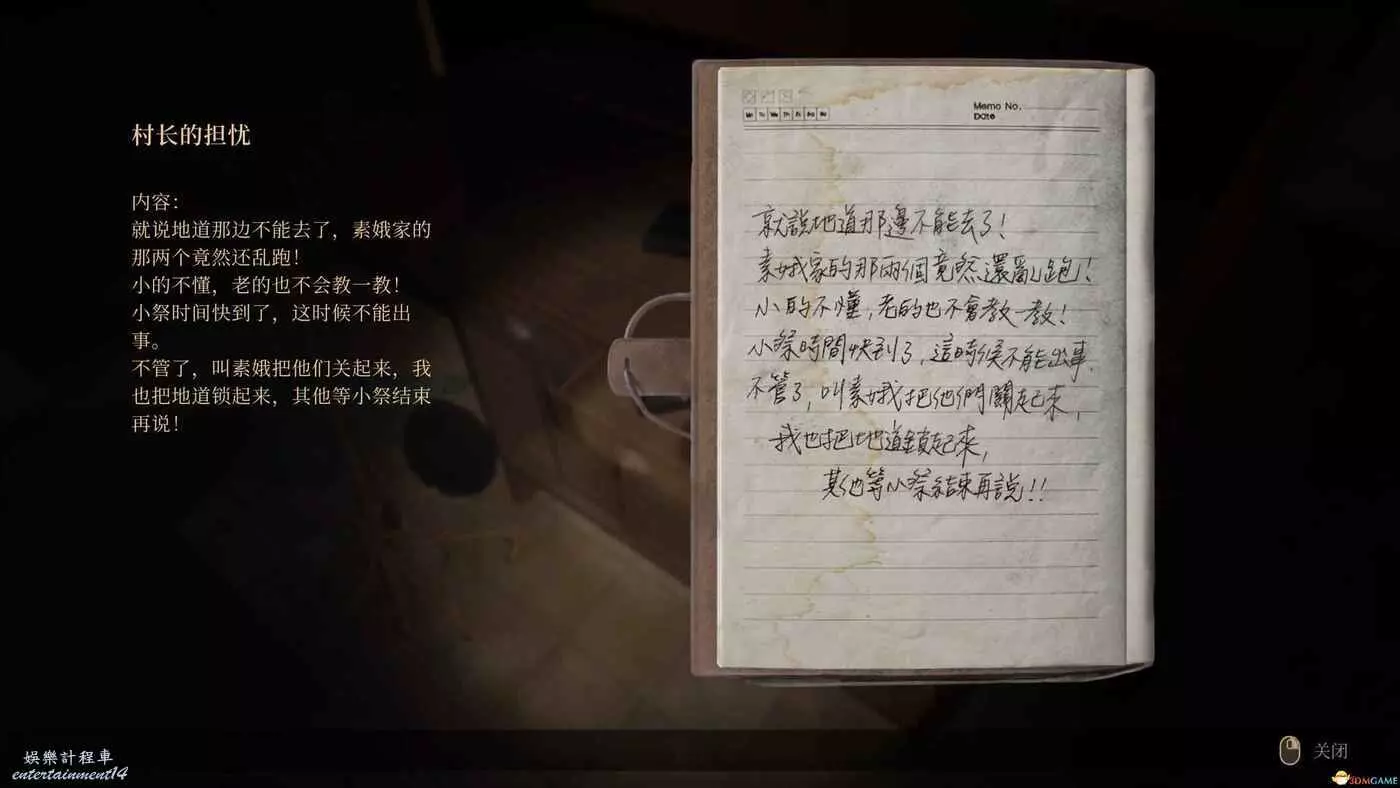 村长的担忧
内容：
就说地道那边不能去了，素娥家的
那两个竟然还乱跑！
小的不懂，老的也不会教一教！
小祭时间快到了，这时候不能出
事。
不管了，叫素娥把他们关起来，我
也把地道锁起来，其他等小祭结束
再说！
Memo No.
Date
就說地道那邊不能去了！
素娥家的那兩個竟然還亂跑！
小的不懂，老的也不會教一教！
小祭時間快到了，這時候不能出事．
不管了，叫素娥把他們關起來，
我也把地道鎖起來，
其他等小祭結束再說！！
关闭
娛樂計程車
entertainment14
3DMGAME